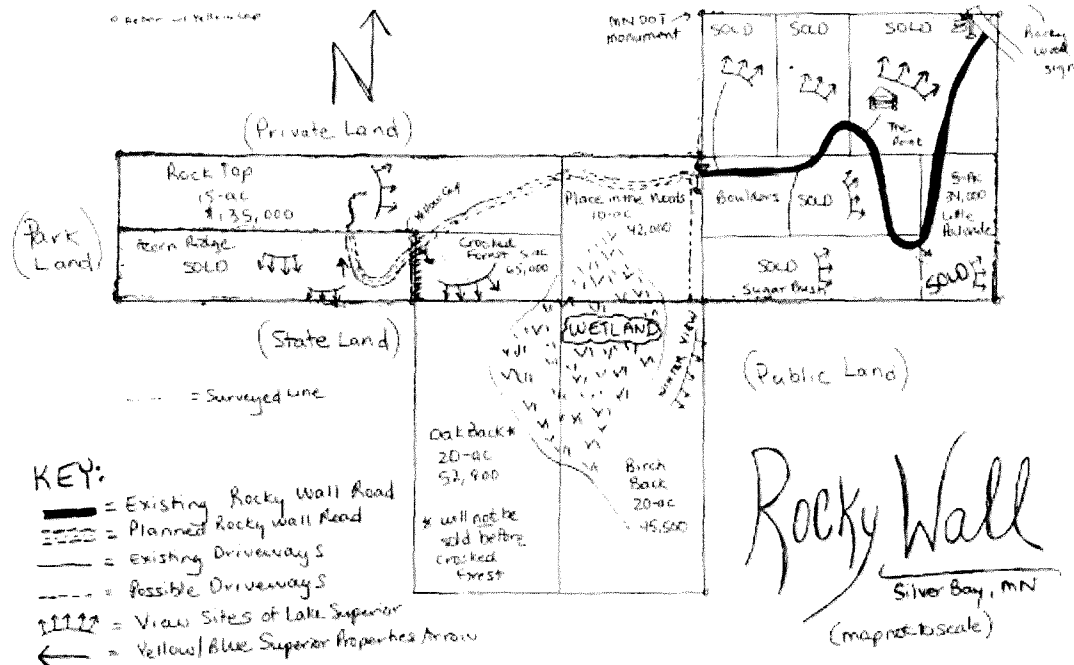 MN DOT
monument
SOLD
SOLD
SOLD
Rocky
Wall
sign
N
(Private Land)
The
Point
Rock Top
15-ac
$135,000
Yellow Gate
Place in the Woods
10-ac
42,000
Boulders
SOLD
5-AC
34,000
Little
Palisade
(Park
Land)
Acorn Ridge
SOLD
Crooked
Forest 5-ac
65,000
SOLD
Sugar Bush
SOLD
WETLAND
WINTER VIEW
(State Land)
(Public Land)
= Surveyed Line
Oak Back*
20-ac
52,900
* will not be
sold before
Crooked
Forest
Birch
Back
20-ac
45,500
KEY:
= Existing Rocky Wall Road
= Planned Rocky Wall Road
= Existing Driveways
= Possible Driveways
= View Sites of Lake Superior
= Yellow/Blue Superior Properties Arrow
Rocky Wall
Silver Bay, MN
(map not to scale)